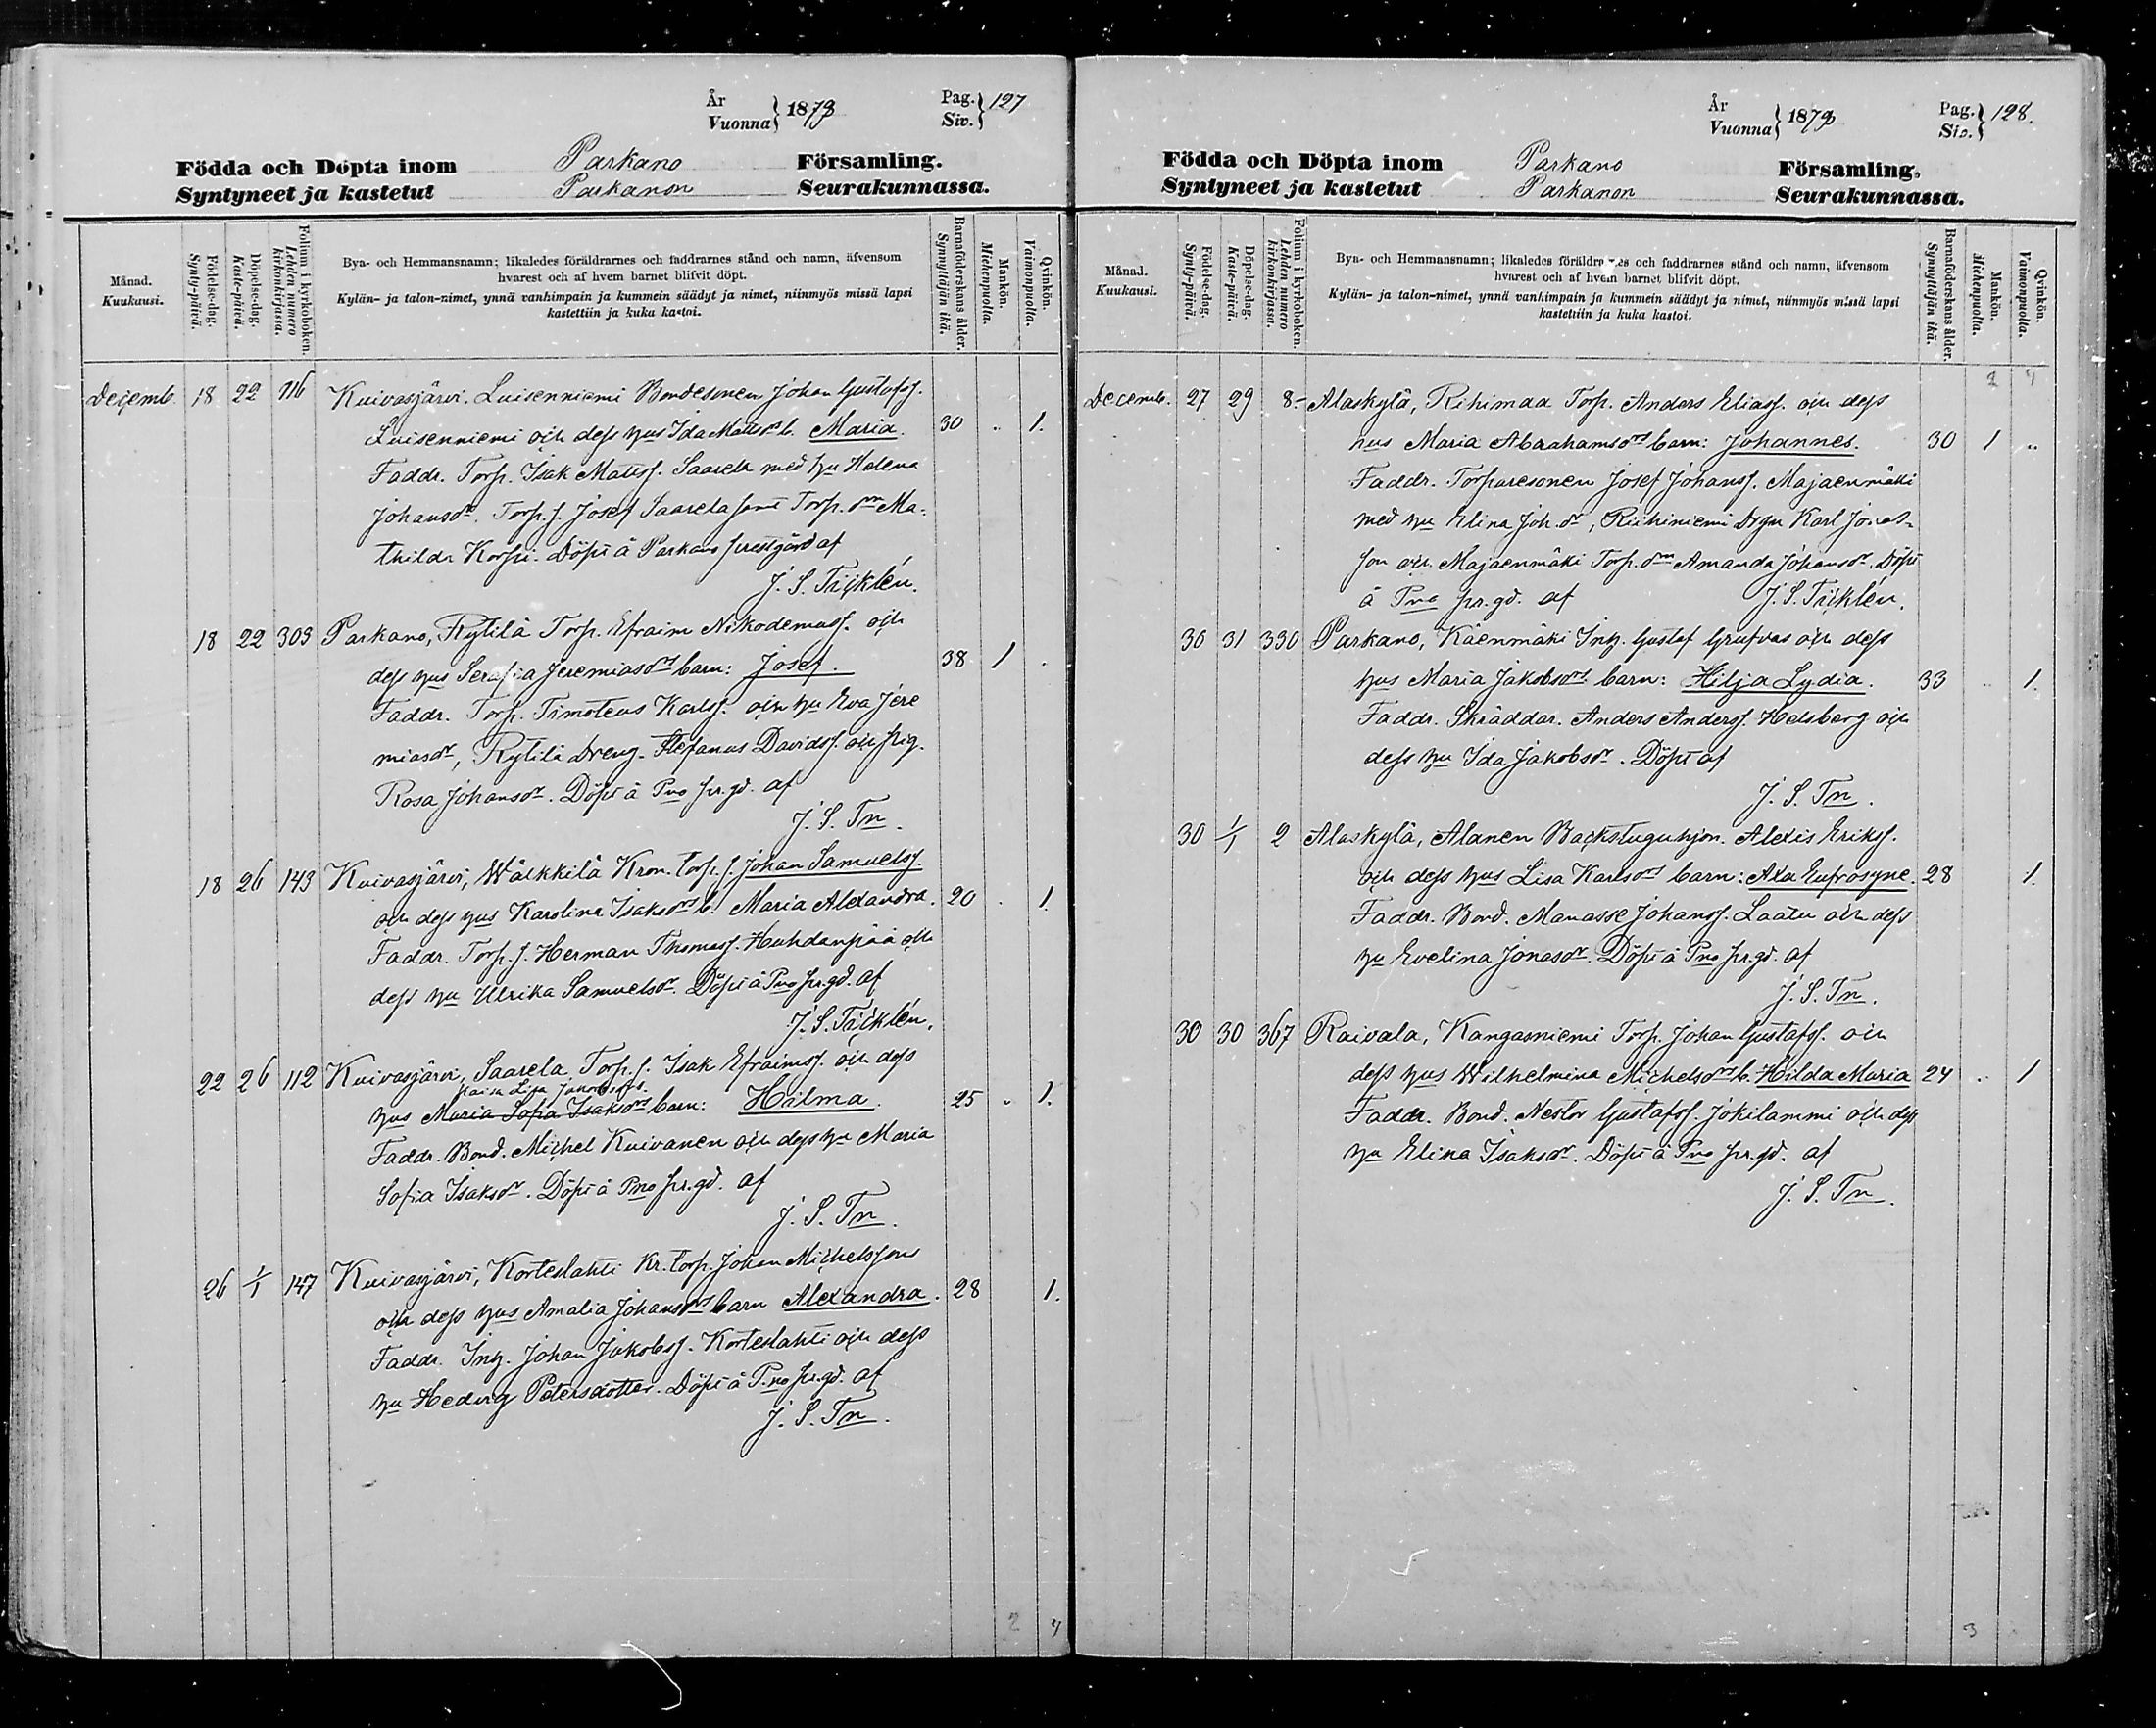 År
Vuonna } 1878
Pag.
Siv. } 127
Födda och Döpta inom Parkano Församling.
Syntyneet ja kastetut Parkanon Seurakunnassa.
Månad.
Kuukausi.
Födelse-dag.
Synty-päivä.
Döpelse-dag.
Kaste-päivä.
Folium i kyrkoboken.
Lehden numero kirkonkirjassa.
Bya- och Hemmansnamn; likaledes föräldrarnes och faddrarnes stånd och namn, äfvensom
hvarest och af hvem barnet blifvit döpt.
Kylän- ja talon-nimet, ynnä vanhimpain ja kummein säädyt ja nimet, niinmyös missä lapsi
kastettiin ja kuka kastoi.
Barnaföderskans ålder.
Synnyttäjän ikä.
Mankön.
Miehenpuolta.
Qvinkön.
Vaimonpuolta.
Decemb. 18 22 116 Kuivasjärvi. Luisenniemi Bondesonen Johan Gustafss.
Luisenniemi och dess hus Ida Mattsdrs b. Maria. 30 .. 1.
Faddr. Torp. Isak Matss. Saarela med hu Helena
Johansdr. Torp. s. Josef Saarela samt Torp. drn Ma-
thilda Korpi. Döpt å Parkano prestgård af
J. S. Täcklén.
18 22 303 Parkano, Rytilä Torp. Efraim Nikodemuss. och
dess hus Serafia Jeremiasdrs barn: Josef. 38 1 .
Faddr. Torp. Timoteus Karlss. och hu Eva Jere
miasdr, Rytilä Dreng. Stefanus Davidss. och pig.
Rosa Johansdr. Döpt å Pno pr.gd. af
J. S. Tn.
18 26 143 Kuivasjärvi, Wälkkilä Kron. torp. s. Johan Samuelss.
och dess hus Karolina Isaksdrs b. Maria Alexandra. 20 . 1.
Faddr. Torp. s. Herman Thomass. Huhdanpää och
dess hu Ulrika Samuelsdr. Döpt å Pno pr.gd. af
J. S. Täcklén.
22 26 112 Kuivasjärvi, Saarela Torp. s. Isak Efraimss. och dess
Maija Lisa Jakobsdrs
hus Maria Sofia Isaksdrs barn: Hilma. 25 .. 1.
Faddr. Bond. Michel Kuivanen och dess hu Maria
Sofia Isaksdr. Döpt å Pno pr.gd. af
J. S. Tn.
26 1/1 147 Kuivasjärvi, Korteslahti Kr. torp. Johan Michelsson
och dess hus Amalia Johansdrs barn Alexandra. 28 1.
Faddr. Inh. Johan Jakobss. Korteslahti och dess
hu Hedvig Petersdotter. Döpt å Pno pr.gd. af
J. S. Tn.
2 4
År
Vuonna } 1878
Pag.
Siv. } 128.
Födda och Döpta inom Parkano Församling.
Syntyneet ja kastetut Parkanon Seurakunnassa.
Månad.
Kuukausi.
Födelse-dag.
Synty-päivä.
Döpelse-dag.
Kaste-päivä.
Folium i kyrkoboken.
Lehden numero kirkonkirjassa.
Bya- och Hemmansnamn; likaledes föräldrarnes och faddrarnes stånd och namn, äfvensom
hvarest och af hvem barnet blifvit döpt.
Kylän- ja talon-nimet, ynnä vanhimpain ja kummein säädyt ja nimet, niinmyös missä lapsi
kastettiin ja kuka kastoi.
Barnaföderskans ålder.
Synnyttäjän ikä.
Mankön.
Miehenpuolta.
Qvinkön.
Vaimonpuolta.
2 4
Decemb. 27 29 8.- Alaskylä, Rihimaa Torp. Anders Eliass. och dess
hus Maria Abrahamsdrs barn: Johannes. 30 1 ..
Faddr. Torparesonen Josef Johanss. Majaenmäki
med hu Elina Joh. dr, Riihiniemi Drgn Karl Jonas-
son och Majaenmäki Torp. drn Amanda Johansdr. Döpt
å Pno pr.gd. af J. S. Täcklén.
30 31 330 Parkano, Käenmäki Inh. Gustaf Grufvas och dess
hus Maria Jakobsdrs barn: Hilja Lydia. 33 .. 1.
Faddr. Skräddar. Anders Anderss. Helsberg och
dess hu Ida Jakobsdr. Döpt af
J. S. Tn.
30 1/1 2 Alaskylä, Alanen Backstuguhjon. Alexis Erikss.
och dess hus Lisa Karlsdrs barn: Alxa Eufrosyne. 28 1.
Faddr. Bond. Manasse Johanss. Laatu och dess
hu Evelina Jonasdr. Döpt å Pno pr.gd. af
J. S. Tn.
30 30 367 Raivala, Kangasniemi Torp. Johan Gustafss. och
dess hus Wilhelmina Michelsdrs b. Hilda Maria 24 .. 1
Faddr. Bond. Nestor Gustafss. Jokilammi och dess
hu Elina Isaksdr. Döpt å Pno pr.gd. af
J. S. Tn.
3